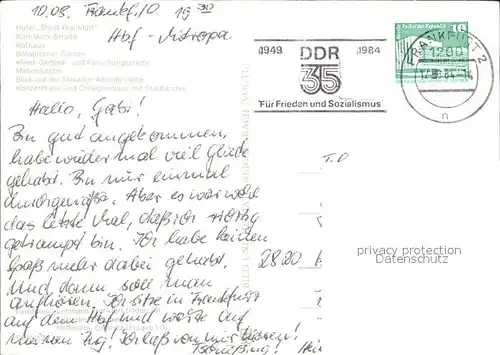 10.08. Frankf./O. 19³⁰
Hbf - Mitropa
Hotel "Stadt Frankfurt"
Karl-Marx-Straße
Rathaus
Botanischer Garten
Kleist-Gedenk- und Forschungsstätte
Marienkirche
Blick auf die Salvador-Allende-Höhe
Konzerthalle und Collegienhaus mit Stadtarchiv
1949 DDR 1984
35
Für Frieden und Sozialismus
FRANKFURT 2
1200
n
10
Hallo, Gabi!
Bin gut angekommen,
habe wieder mal viel Glück
gehabt. Bin nur einmal
Aber es war wohl
das letzte Mal, daß ich richtig
getrampt bin. Ich habe keinen
Spaß mehr dabei gehabt.
Und dann soll man
aufhören. Ich sitze in Frankfurt
auf dem Hbf und warte auf
meinen Zug! von mir hören!
Tschüßing!
2820
privacy protection
Datenschutz